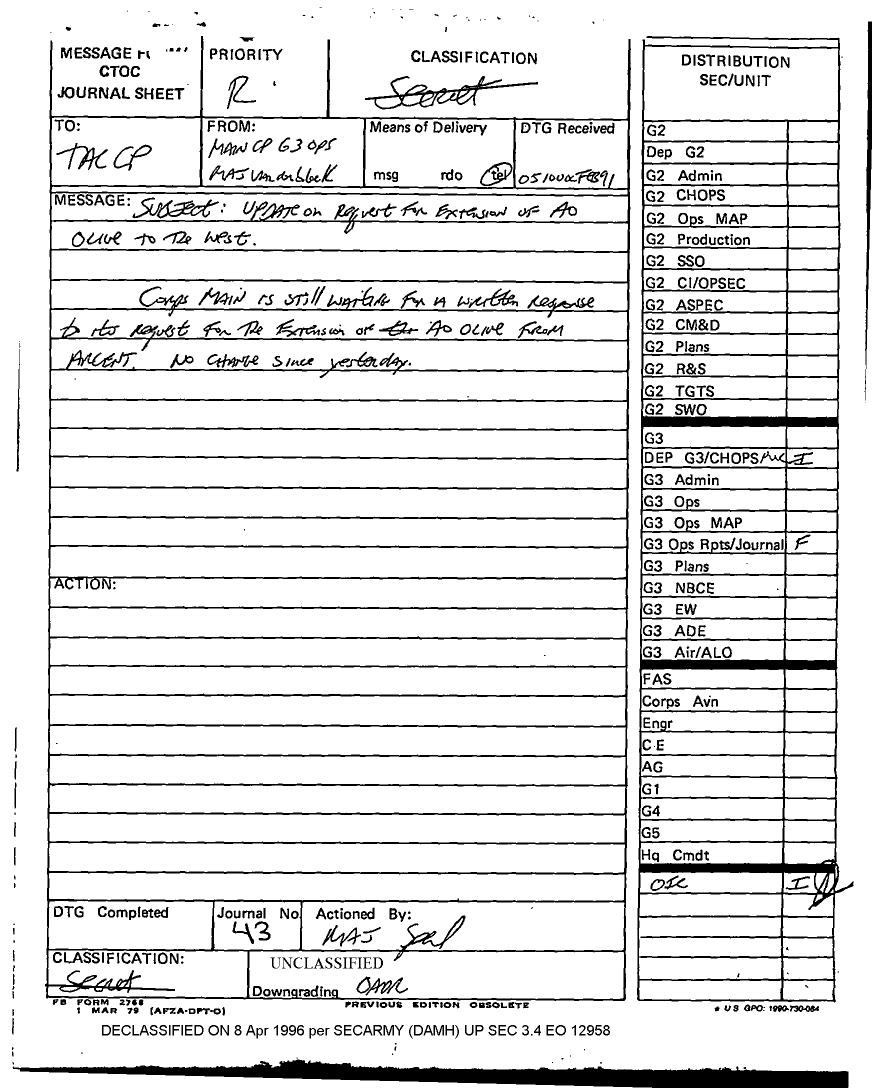 MESSAGE
CTOC
JOURNAL SHEET
PRIORITY
R
CLASSIFICATION
Secret
TO:
TAC CP
FROM:
MAIN CP G3 OPS
MAJ
Means of Delivery
msg rdo tel
DTG Received
MESSAGE: SUBJECT: UPDATE on Request For Extension of AO
OLIVE to The West.
Corps MAIN is still waiting for a written response
to its request For The Extension of AO OLIVE FROM
ARCENT. No change since yesterday.
ACTION:
DTG Completed
Journal No.
43
Actioned By:
MAJ
CLASSIFICATION:
Secret
UNCLASSIFIED
Downgrading OADR
FB FORM 2768
1 MAR 79 (AFZA-DPT-O)
PREVIOUS EDITION OBSOLETE
DISTRIBUTION
SEC/UNIT
G2
Dep G2
G2 Admin
G2 CHOPS
G2 Ops MAP
G2 Production
G2 SSO
G2 CI/OPSEC
G2 ASPEC
G2 CM&D
G2 Plans
G2 R&S
G2 TGTS
G2 SWO
G3
DEP G3/CHOPS/ I
G3 Admin
G3 Ops
G3 Ops MAP
G3 Ops Rpts/Journal F
G3 Plans
G3 NBCE
G3 EW
G3 ADE
G3 Air/ALO
FAS
Corps Avn
Engr
C-E
AG
G1
G4
G5
Hq Cmdt
OIC I
* U S GPO: 1990-730-084
DECLASSIFIED ON 8 Apr 1996 per SECARMY (DAMH) UP SEC 3.4 EO 12958